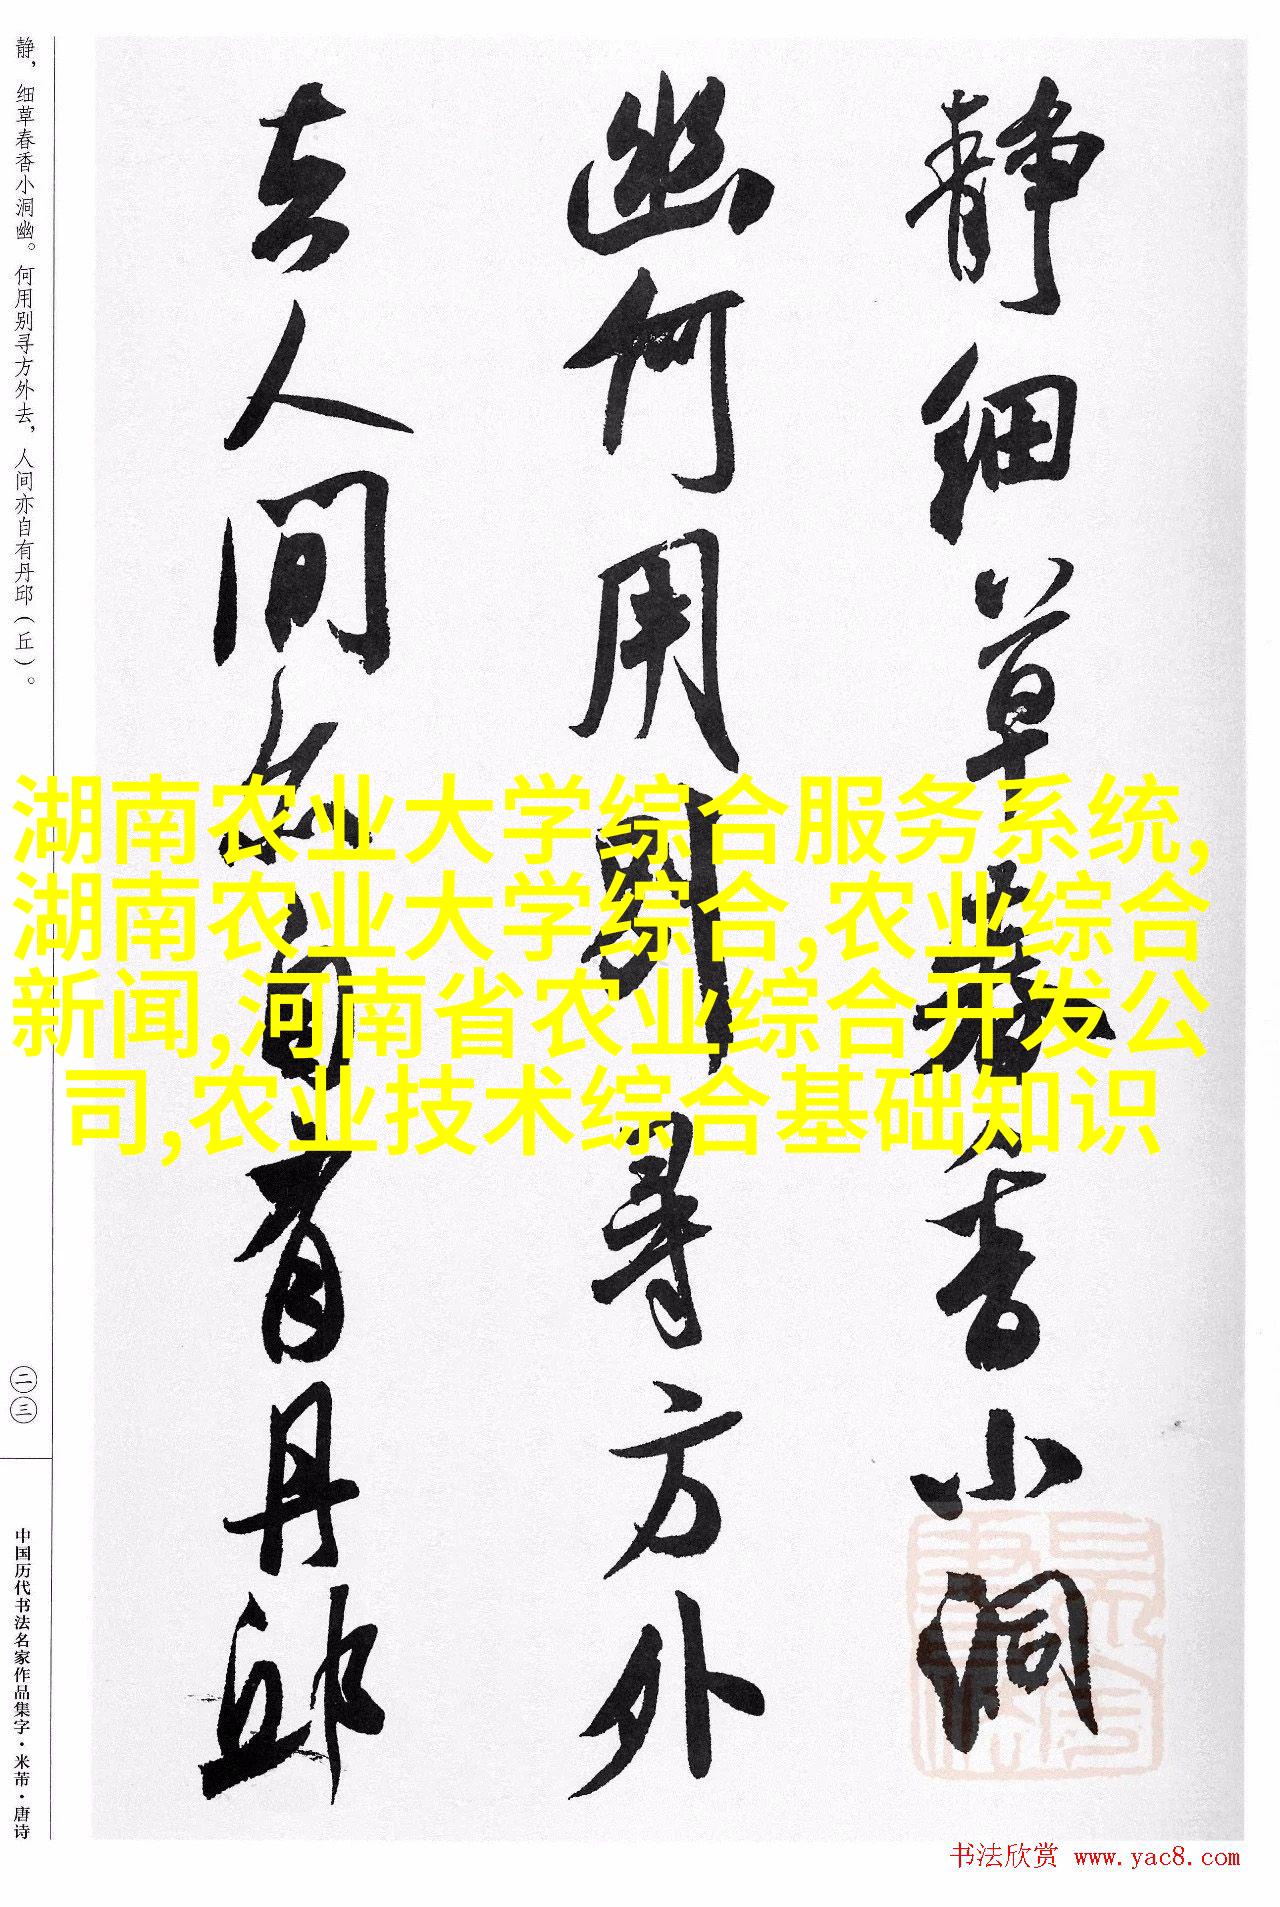 静细草春香小洞
幽何用别寻方外
去人间亦自有丹邱
静，细草春香小洞幽。何用别寻方外去，人间亦自有丹邱（丘）。
二三
中国历代书法名家作品集字·米芾·唐诗
湖南农业大学综合服务系统,
湖南农业大学综合,农业综合
新闻,河南省农业综合开发公
司,农业技术综合基础知识
书法欣赏 www.yac8.com